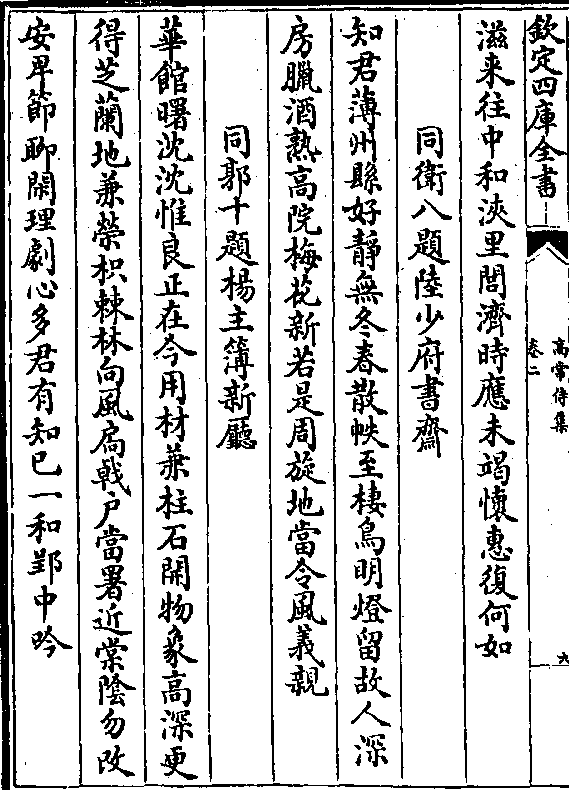 欽定四庫全書
高常侍集
卷二
六
滋来往中和浹里閭濟時應未竭懷惠復何如
同衛八題陸少府書齋
知君薄州縣好靜無冬春散帙至棲鳥明燈留故人深
房臘酒熟高院梅花新若是周旋地當令風義親
同郭十題楊主簿新廳
華館曙沈沈惟良正在今用材兼柱石開物象高深更
得芝蘭地兼榮枳棘林向風扃戟户當署近棠陰勿改
安卑節聊閑理劇心多君有知已一和郢中吟